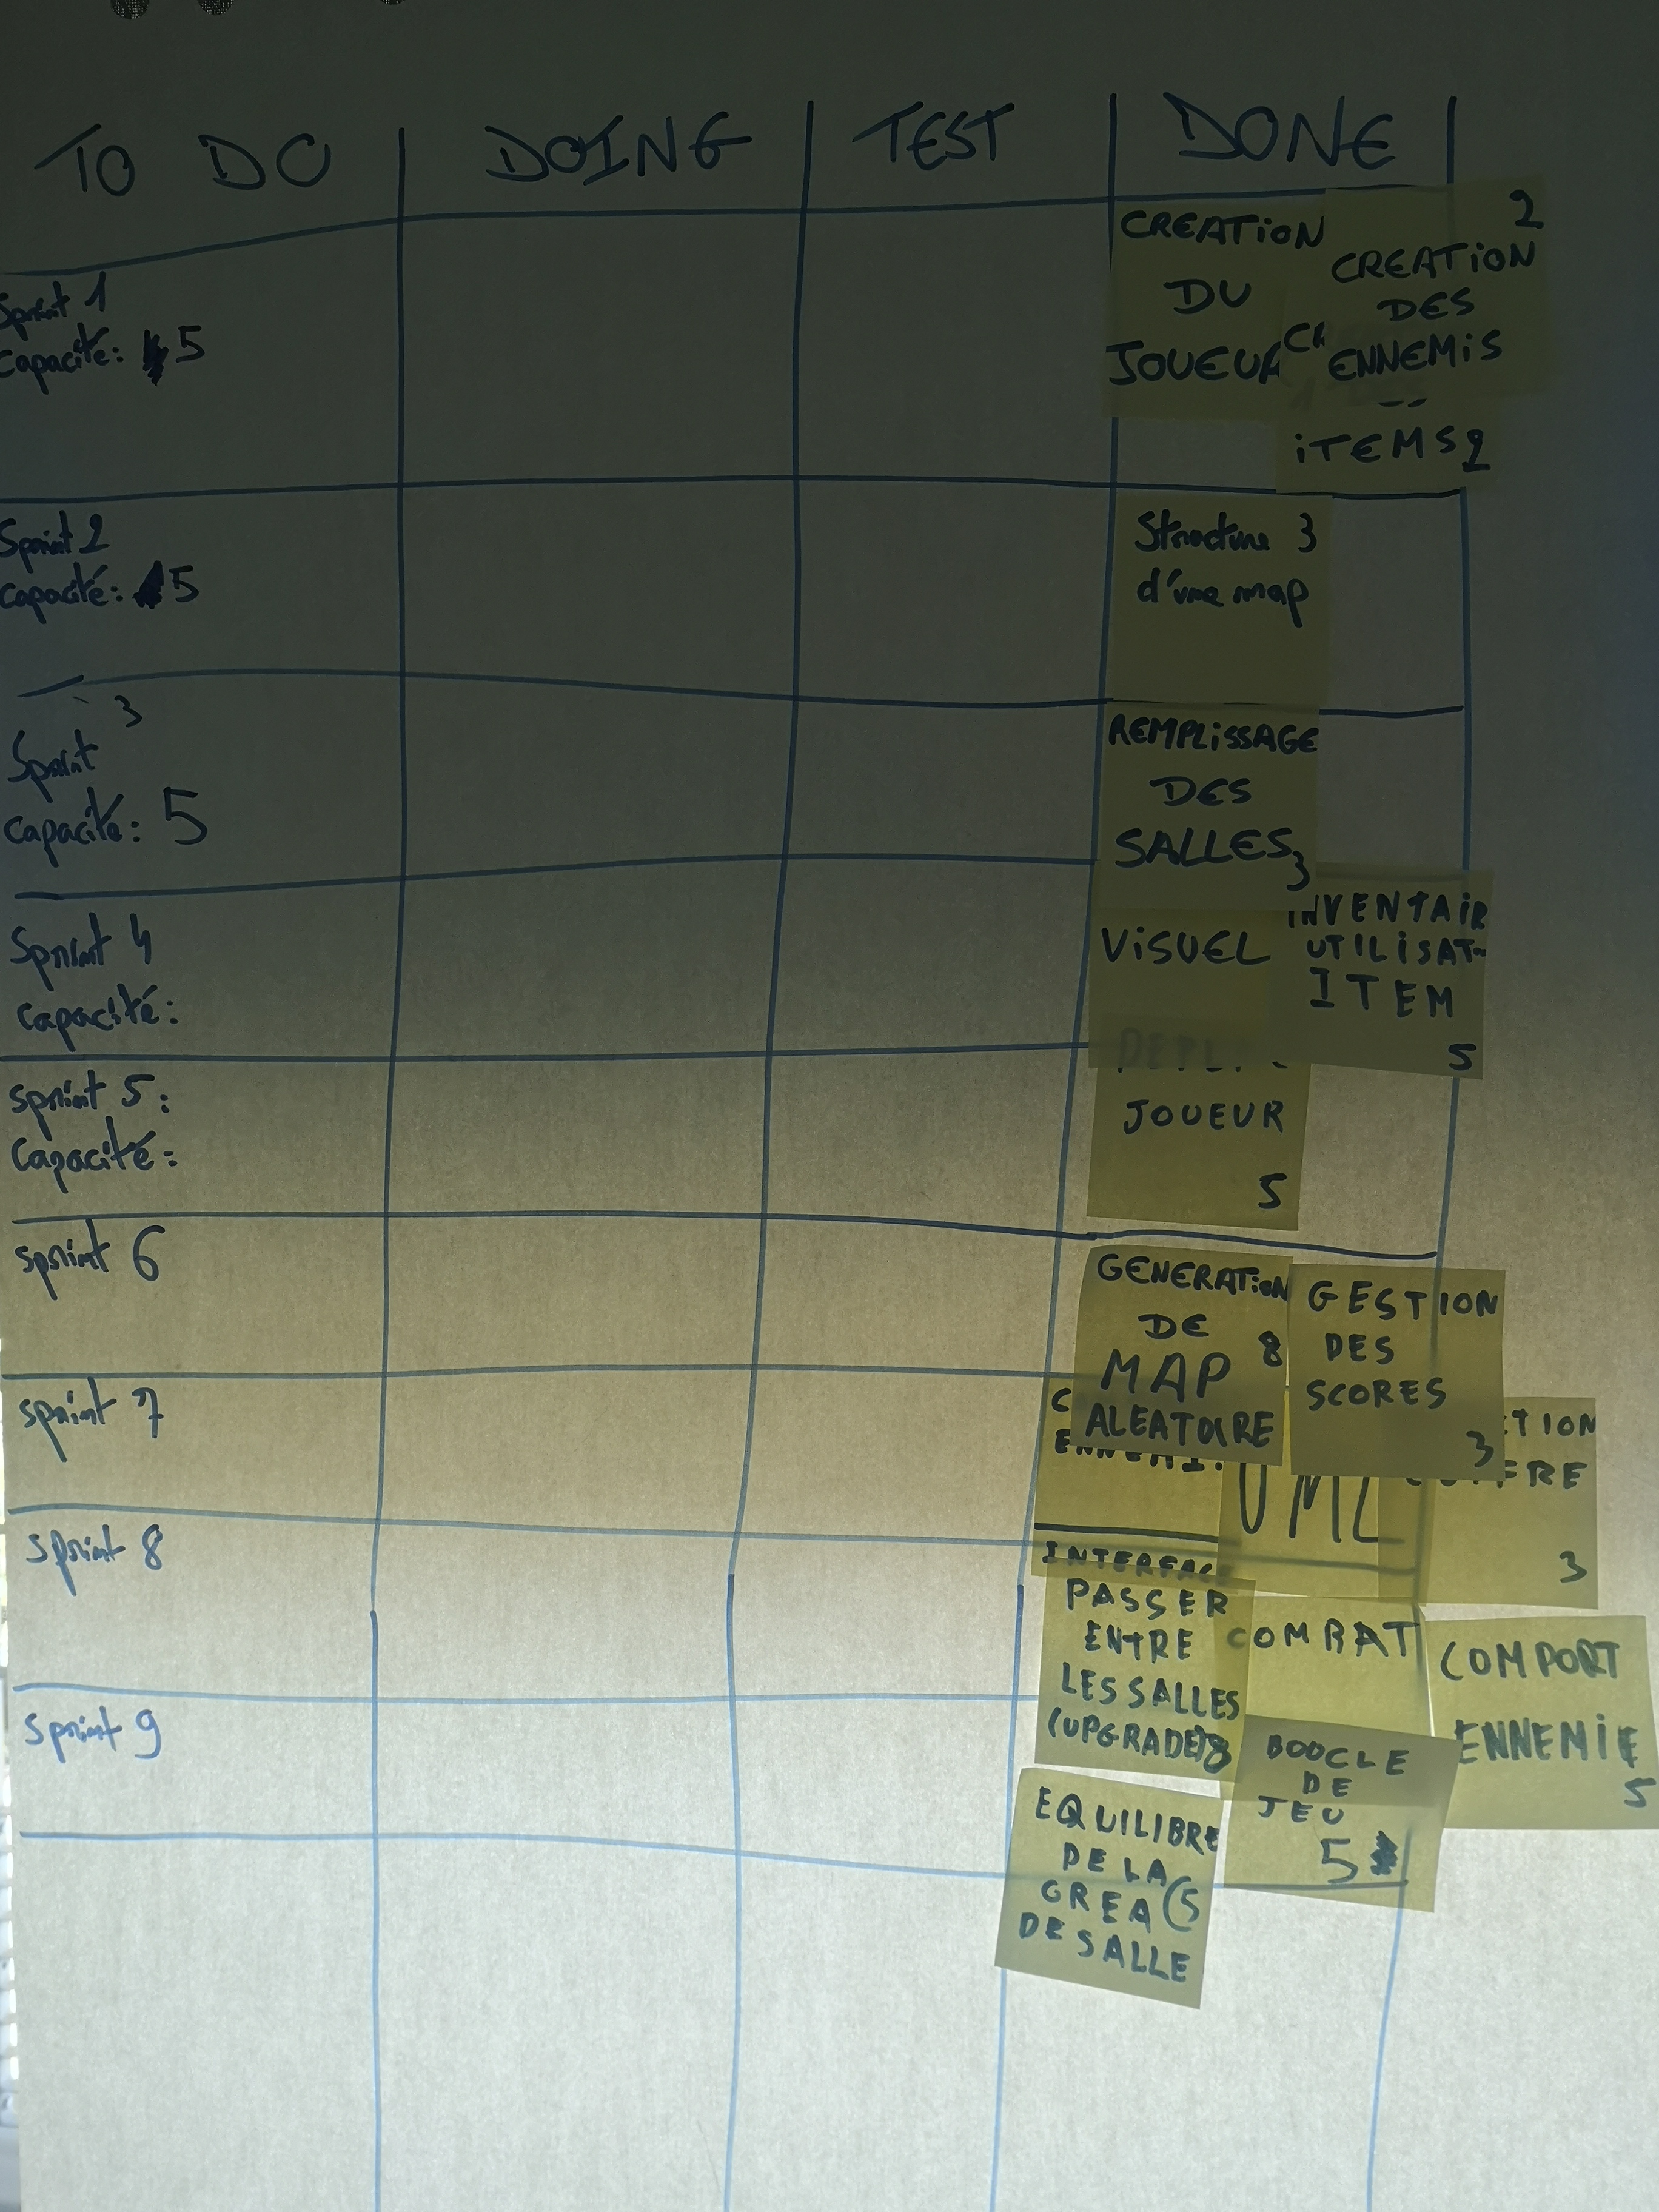 TO DO
DOING
TEST
DONE
Sprint 1
Capacité: 5
CREATION
DU
JOUEUR
2
CREATION
DES
ENNEMIS
ITEMS 2
Sprint 2
Capacité: 5
Structure 3
d'une map
Sprint 3
Capacité: 5
REMPLISSAGE
DES
SALLES
3
Sprint 4
Capacité:
VISUEL
INVENTAIR
UTILISAT
ITEM
5
Sprint 5:
Capacité:
JOUEUR
5
Sprint 6
GENERATION
DE
8
MAP
ALEATOIRE
GESTION
DES
SCORES
3
Sprint 7
UML
3
Sprint 8
INTERFACE
PASSER
ENTRE
LES SALLES
(UPGRADE) 8
COMBAT
COMPORT
ENNEMIE
5
Sprint 9
BOUCLE
DE
JEU
5
EQUILIBRE
DE LA
CREA (5
DE SALLE